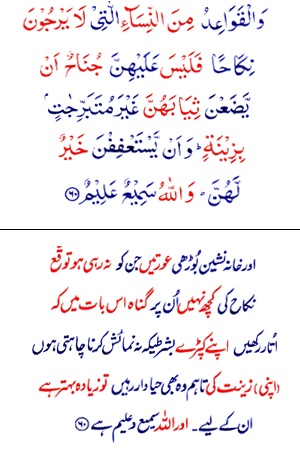 وَالْقَوَاعِدُ مِنَ النِّسَآءِ الّٰتِیْ لَا یَرْجُوْنَ
نِكَاحًا فَلَیْسَ عَلَیْهِنَّ جُنَاحٌ اَنْ
یَّضَعْنَ ثِیَابَهُنَّ غَیْرَ مُتَبَرِّجٰتٍۭ
بِزِیْنَةٍ ؕ وَ اَنْ یَّسْتَعْفِفْنَ خَیْرٌ
لَّهُنَّ ؕ وَ اللّٰهُ سَمِیْعٌ عَلِیْمٌ ﴿۶۰﴾
اور خانہ نشین بُوڑھی عورتیں جن کو نہ رہی ہو توقّع
نکاح کی کچھ نہیں اُن پر گناہ اس بات میں کہ
اُتار رکھیں اپنے کپڑے بشرطیکہ نہ نمائش کرنا چاہتی ہوں
(اپنی) زینت کی تاہم وہ بھی حیادار رہیں تو زیادہ بہتر ہے
ان کے لیے۔ اور اللہ سمیع و علیم ہے ﴿۶۰﴾